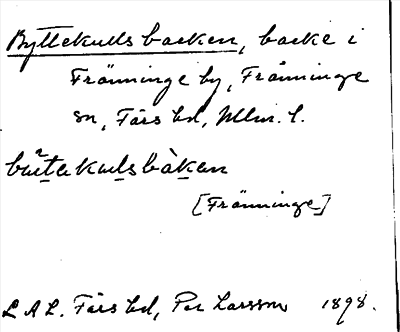 Byttekulls backen, backe i
Fränninge by, Fränninge
sn, Färs hd, Mlm. l.
[Fränninge]
L A L. Färs hd, Per Larsson 1898.